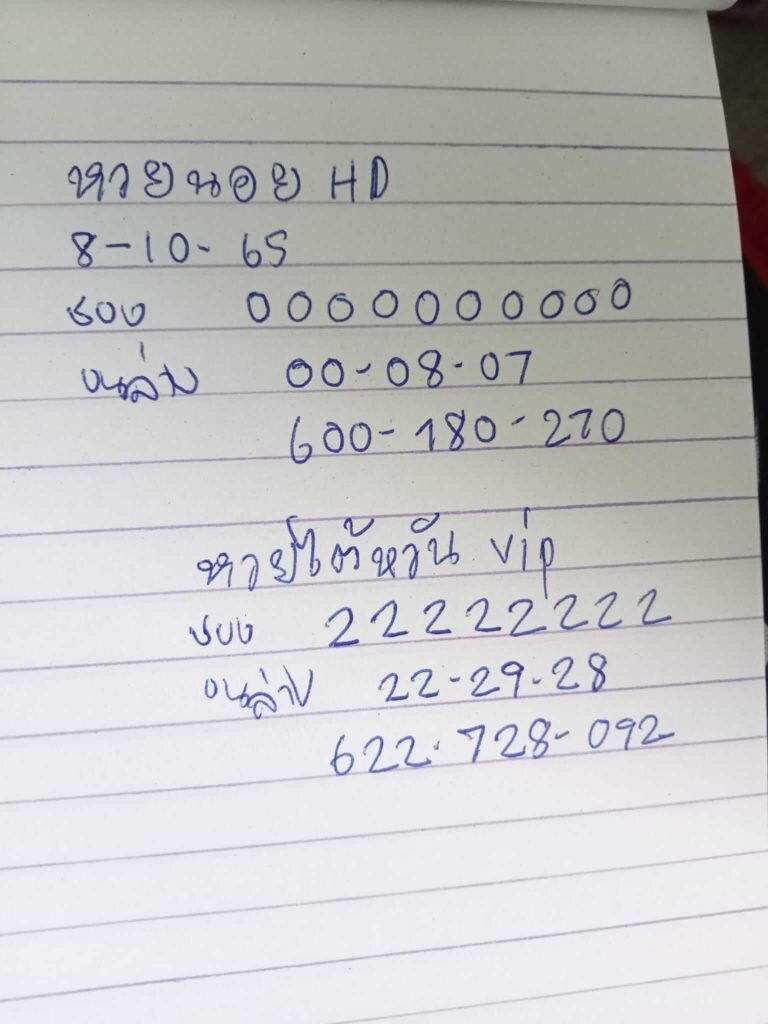 หวยนอย HD
8-10-65
ชอบ 0000000000
บนล่าง 00-08-07
600-180-270
หวยไต้หวัน vip
ชอบ 222222222
บนล่าง 22-29-28
622-728-092